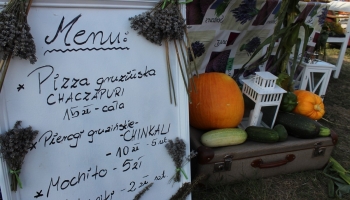 Menu:
* Pizza gruzińska
CHACZAPURI
15zł - cała
* Pierogi gruzińskie -
CHINKALI
- 10 zł - 5 szt.
* Mochito - 5zł
- 2zł szt.